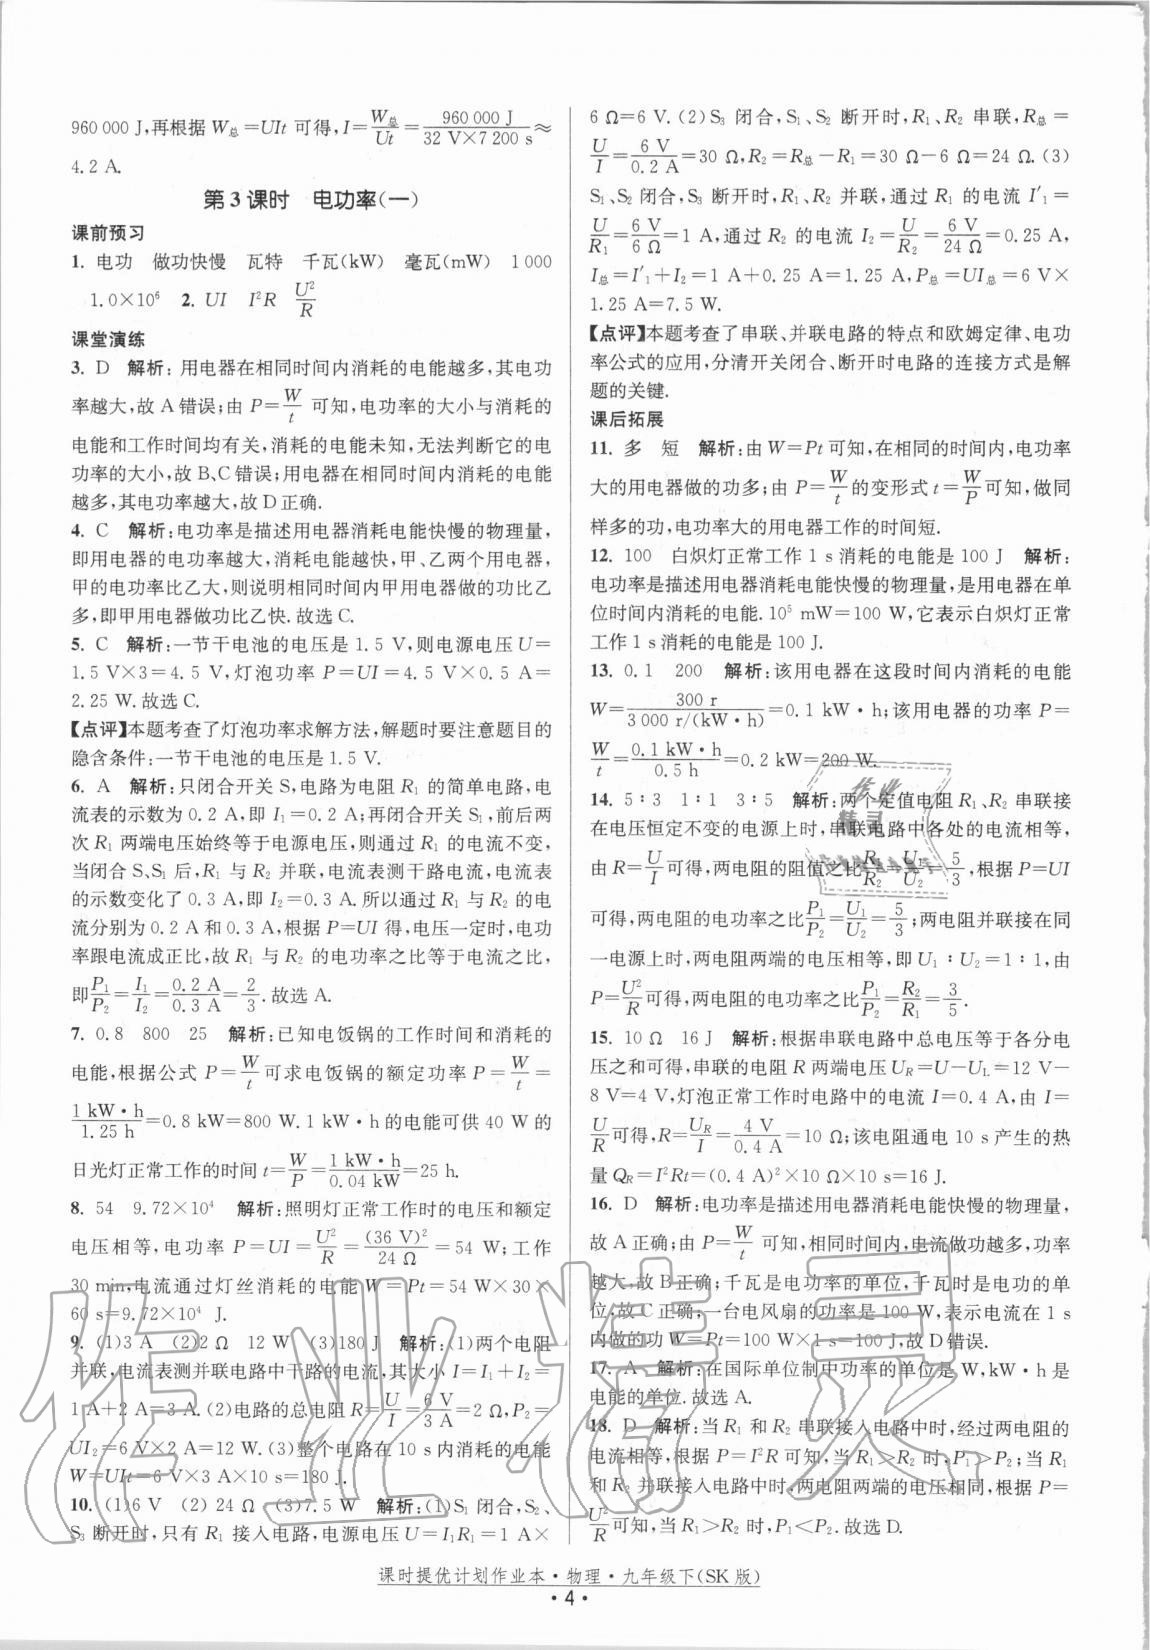 960 000 J,再根据 W总=UIt 可得,I=W总/Ut=960 000 J/(32 V×7 200 s)≈
4.2 A.
第 3 课时 电功率(一)
课前预习
1. 电功 做功快慢 瓦特 千瓦(kW) 毫瓦(mW) 1 000
1.0×10⁶ 2. UI I²R U²/R
课堂演练
3. D 解析:用电器在相同时间内消耗的电能越多,其电功
率越大,故 A 错误;由 P=W/t 可知,电功率的大小与消耗的
电能和工作时间均有关,消耗的电能未知,无法判断它的电
功率的大小,故 B、C 错误;用电器在相同时间内消耗的电能
越多,其电功率越大,故 D 正确.
4. C 解析:电功率是描述用电器消耗电能快慢的物理量,
即用电器的电功率越大,消耗电能越快,甲、乙两个用电器,
甲的电功率比乙大,则说明相同时间内甲用电器做的功比乙
多,即甲用电器做功比乙快.故选 C.
5. C 解析:一节干电池的电压是 1.5 V,则电源电压 U=
1.5 V×3=4.5 V,灯泡功率 P=UI=4.5 V×0.5 A=
2.25 W.故选 C.
【点评】本题考查了灯泡功率求解方法,解题时要注意题目的
隐含条件:一节干电池的电压是 1.5 V.
6. A 解析:只闭合开关 S,电路为电阻 R₁ 的简单电路,电
流表的示数为 0.2 A,即 I₁=0.2 A;再闭合开关 S₁,前后两
次 R₁ 两端电压始终等于电源电压,则通过 R₁ 的电流不变,
当闭合 S、S₁ 后,R₁ 与 R₂ 并联,电流表测干路电流,电流表
的示数变化了 0.3 A,即 I₂=0.3 A.所以通过 R₁ 与 R₂ 的电
流分别为 0.2 A 和 0.3 A,根据 P=UI 得,电压一定时,电功
率跟电流成正比,故 R₁ 与 R₂ 的电功率之比等于电流之比,
即P₁/P₂=I₁/I₂=0.2 A/0.3 A=2/3.故选 A.
7. 0.8 800 25 解析:已知电饭锅的工作时间和消耗的
电能,根据公式 P=W/t 可求电饭锅的额定功率 P=W/t=
1 kW·h/1.25 h=0.8 kW=800 W.1 kW·h 的电能可供 40 W 的
日光灯正常工作的时间 t=W/P=1 kW·h/0.04 kW=25 h.
8. 54 9.72×10⁴ 解析:照明灯正常工作时的电压和额定
电压相等,电功率 P=UI=U²/R=(36 V)²/24 Ω=54 W;工作
30 min,电流通过灯丝消耗的电能 W=Pt=54 W×30×
60 s=9.72×10⁴ J.
9. (1)3 A (2)2 Ω 12 W (3)180 J 解析:(1)两个电阻
并联,电流表测并联电路中干路的电流,其大小 I=I₁+I₂=
1 A+2 A=3 A.(2)电路的总电阻 R=U/I=6 V/3 A=2 Ω,P₂=
UI₂=6 V×2 A=12 W.(3)整个电路在 10 s 内消耗的电能
W=UIt=6 V×3 A×10 s=180 J.
10. (1)6 V (2) 24 Ω (3)7.5 W 解析:(1)S₁ 闭合,S₂、
S₃ 断开时,只有 R₁ 接入电路,电源电压 U=I₁R₁=1 A×
6 Ω=6 V.(2)S₃ 闭合,S₁、S₂ 断开时,R₁、R₂ 串联,R总=
U/I=6 V/0.2 A=30 Ω,R₂=R总-R₁=30 Ω-6 Ω=24 Ω.(3)
S₁、S₂ 闭合,S₃ 断开时,R₁、R₂ 并联,通过 R₁ 的电流 I′₁=
U/R₁=6 V/6 Ω=1 A,通过 R₂ 的电流 I₂=U/R₂=6 V/24 Ω=0.25 A,
I总=I′₁+I₂=1 A+0.25 A=1.25 A,P总=UI总=6 V×
1.25 A=7.5 W.
【点评】本题考查了串联、并联电路的特点和欧姆定律、电功
率公式的应用,分清开关闭合、断开时电路的连接方式是解
题的关键.
课后拓展
11. 多 短 解析:由 W=Pt 可知,在相同的时间内,电功率
大的用电器做的功多;由 P=W/t 的变形式 t=W/P可知,做同
样多的功,电功率大的用电器工作的时间短.
12. 100 白炽灯正常工作 1 s 消耗的电能是 100 J 解析:
电功率是描述用电器消耗电能快慢的物理量,是用电器在单
位时间内消耗的电能.10⁵ mW=100 W,它表示白炽灯正常
工作 1 s 消耗的电能是 100 J.
13. 0.1 200 解析:该用电器在这段时间内消耗的电能
W=300 r/(3 000 r/(kW·h))=0.1 kW·h;该用电器的功率 P=
W/t=0.1 kW·h/0.5 h=0.2 kW=200 W.
14. 5∶3 1∶1 3∶5 解析:两个定值电阻 R₁、R₂ 串联接
在电压恒定不变的电源上时,串联电路中各处的电流相等,
由 R=U/I可得,两电阻的阻值之比R₁/R₂=U₁/U₂=5/3,根据 P=UI
可得,两电阻的电功率之比P₁/P₂=U₁/U₂=5/3;两电阻并联接在同
一电源上时,两电阻两端的电压相等,即 U₁∶U₂=1∶1,由
P=U²/R可得,两电阻的电功率之比P₁/P₂=R₂/R₁=3/5.
15. 10 Ω 16 J 解析:根据串联电路中总电压等于各分电
压之和可得,串联的电阻 R 两端电压 U_R=U-U_L=12 V-
8 V=4 V,灯泡正常工作时电路中的电流 I=0.4 A,由 I=
U/R可得,R=U_R/I=4 V/0.4 A=10 Ω;该电阻通电 10 s 产生的热
量 Q_R=I²Rt=(0.4 A)²×10 Ω×10 s=16 J.
16. D 解析:电功率是描述用电器消耗电能快慢的物理量,
故 A 正确;由 P=W/t 可知,相同时间内,电流做功越多,功率
越大,故 B 正确;千瓦是电功率的单位,千瓦时是电功的单
位,故 C 正确;一台电风扇的功率是 100 W,表示电流在 1 s
内做的功 W=Pt=100 W×1 s=100 J,故 D 错误.
17. A 解析:在国际单位制中功率的单位是 W,kW·h 是
电能的单位.故选 A.
18. D 解析:当 R₁ 和 R₂ 串联接入电路中时,经过两电阻的
电流相等,根据 P=I²R 可知,当 R₁>R₂ 时,P₁>P₂;当 R₁
和 R₂ 并联接入电路中时,两电阻两端的电压相等,根据 P=
U²/R可知,当 R₁>R₂ 时,P₁<P₂.故选 D.
课时提优计划作业本·物理·九年级下(SK 版)
·4·
作业精灵